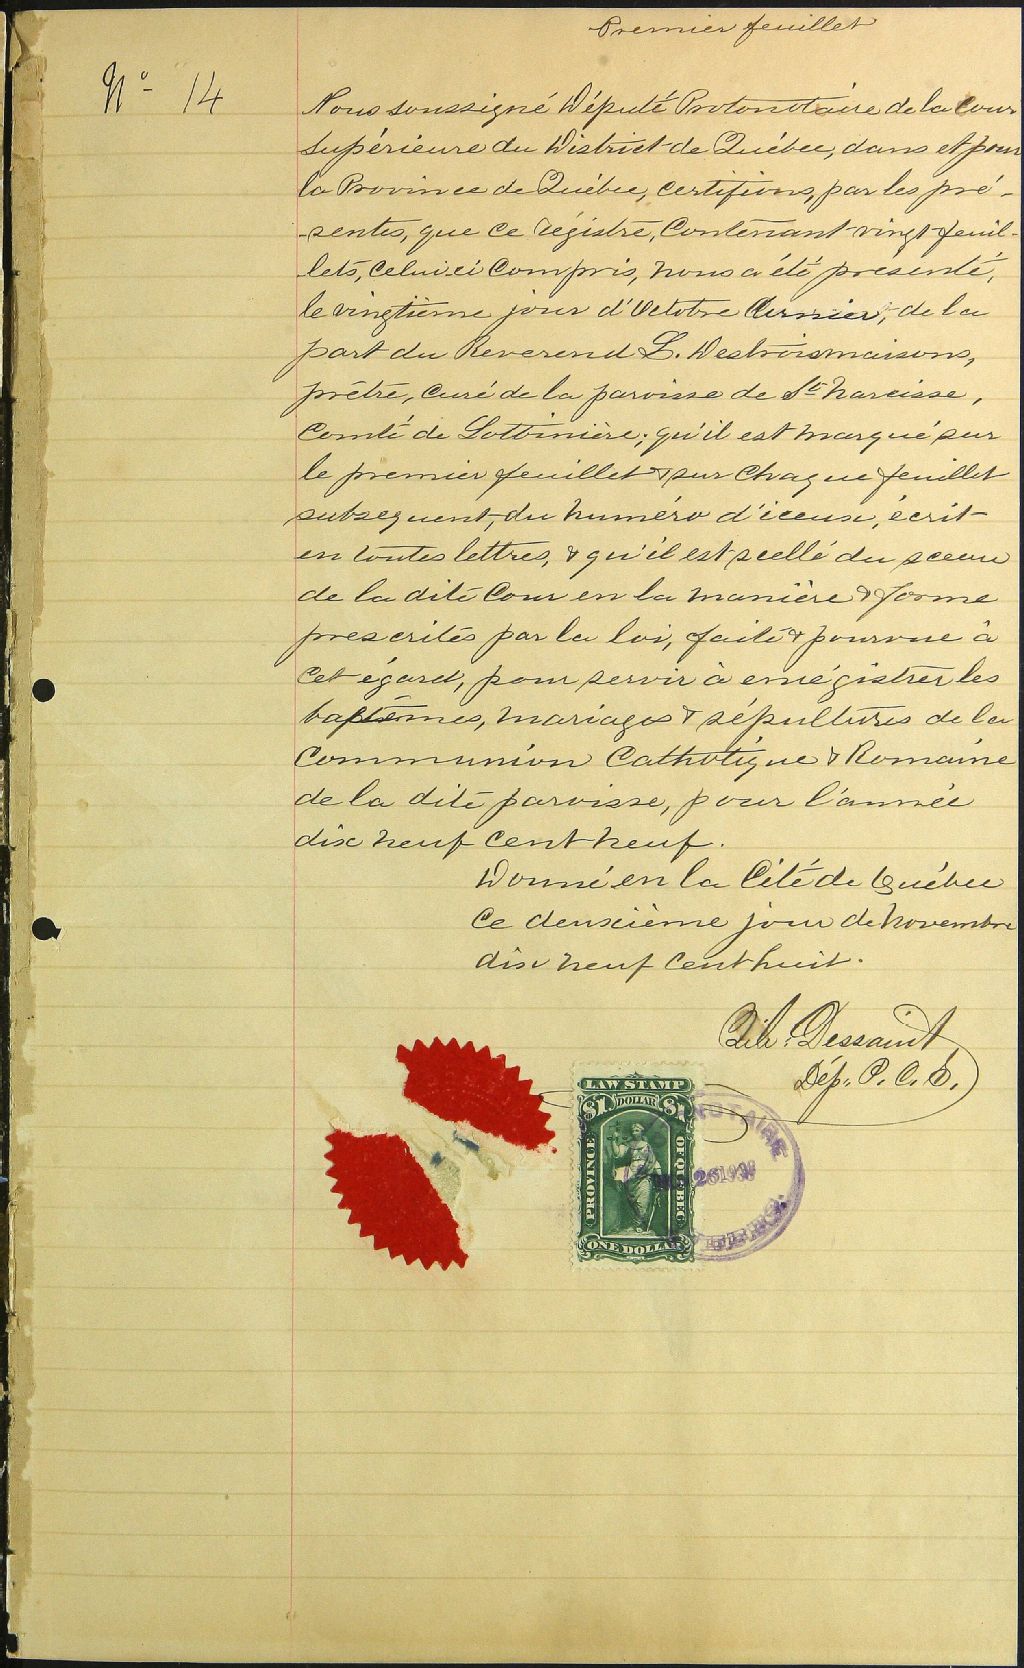 Premier feuillet
No 14
Nous soussigné Député Protonotaire de la Cour
Supérieure du District de Québec, dans et pour
la Province de Québec, certifions, par les pré-
-sentes, que ce régistre, contenant vingt feuil-
lets, celui ci compris, nous a été présenté,
le vingtième jour d'Octobre dernier, de la
part du Reverend L. Destroismaisons,
prêtre, curé de la paroisse de St Narcisse,
Comté de Lotbinière; qu'il est marqué sur
le premier feuillet & sur chaque feuillet
subsequent, du numéro d'iceux, écrit
en toutes lettres, & qu'il est scellé du sceau
de la dite Cour en la manière & forme
prescrites par la loi, faite & pourvue à
cet égard, pour servir à enrégistrer les
baptêmes, mariages & sépultures de la
Communion Catholique & Romaine
de la dite paroisse, pour l'année
dix neuf cent neuf.
Donné en la Cité de Québec
ce deuxième jour de Novembre
dix neuf cent huit.
Dessaint
Dép. P. C. S.
LAW STAMP
$1 DOLLAR $1
PROVINCE OF QUEBEC
ONE DOLLAR
26 190